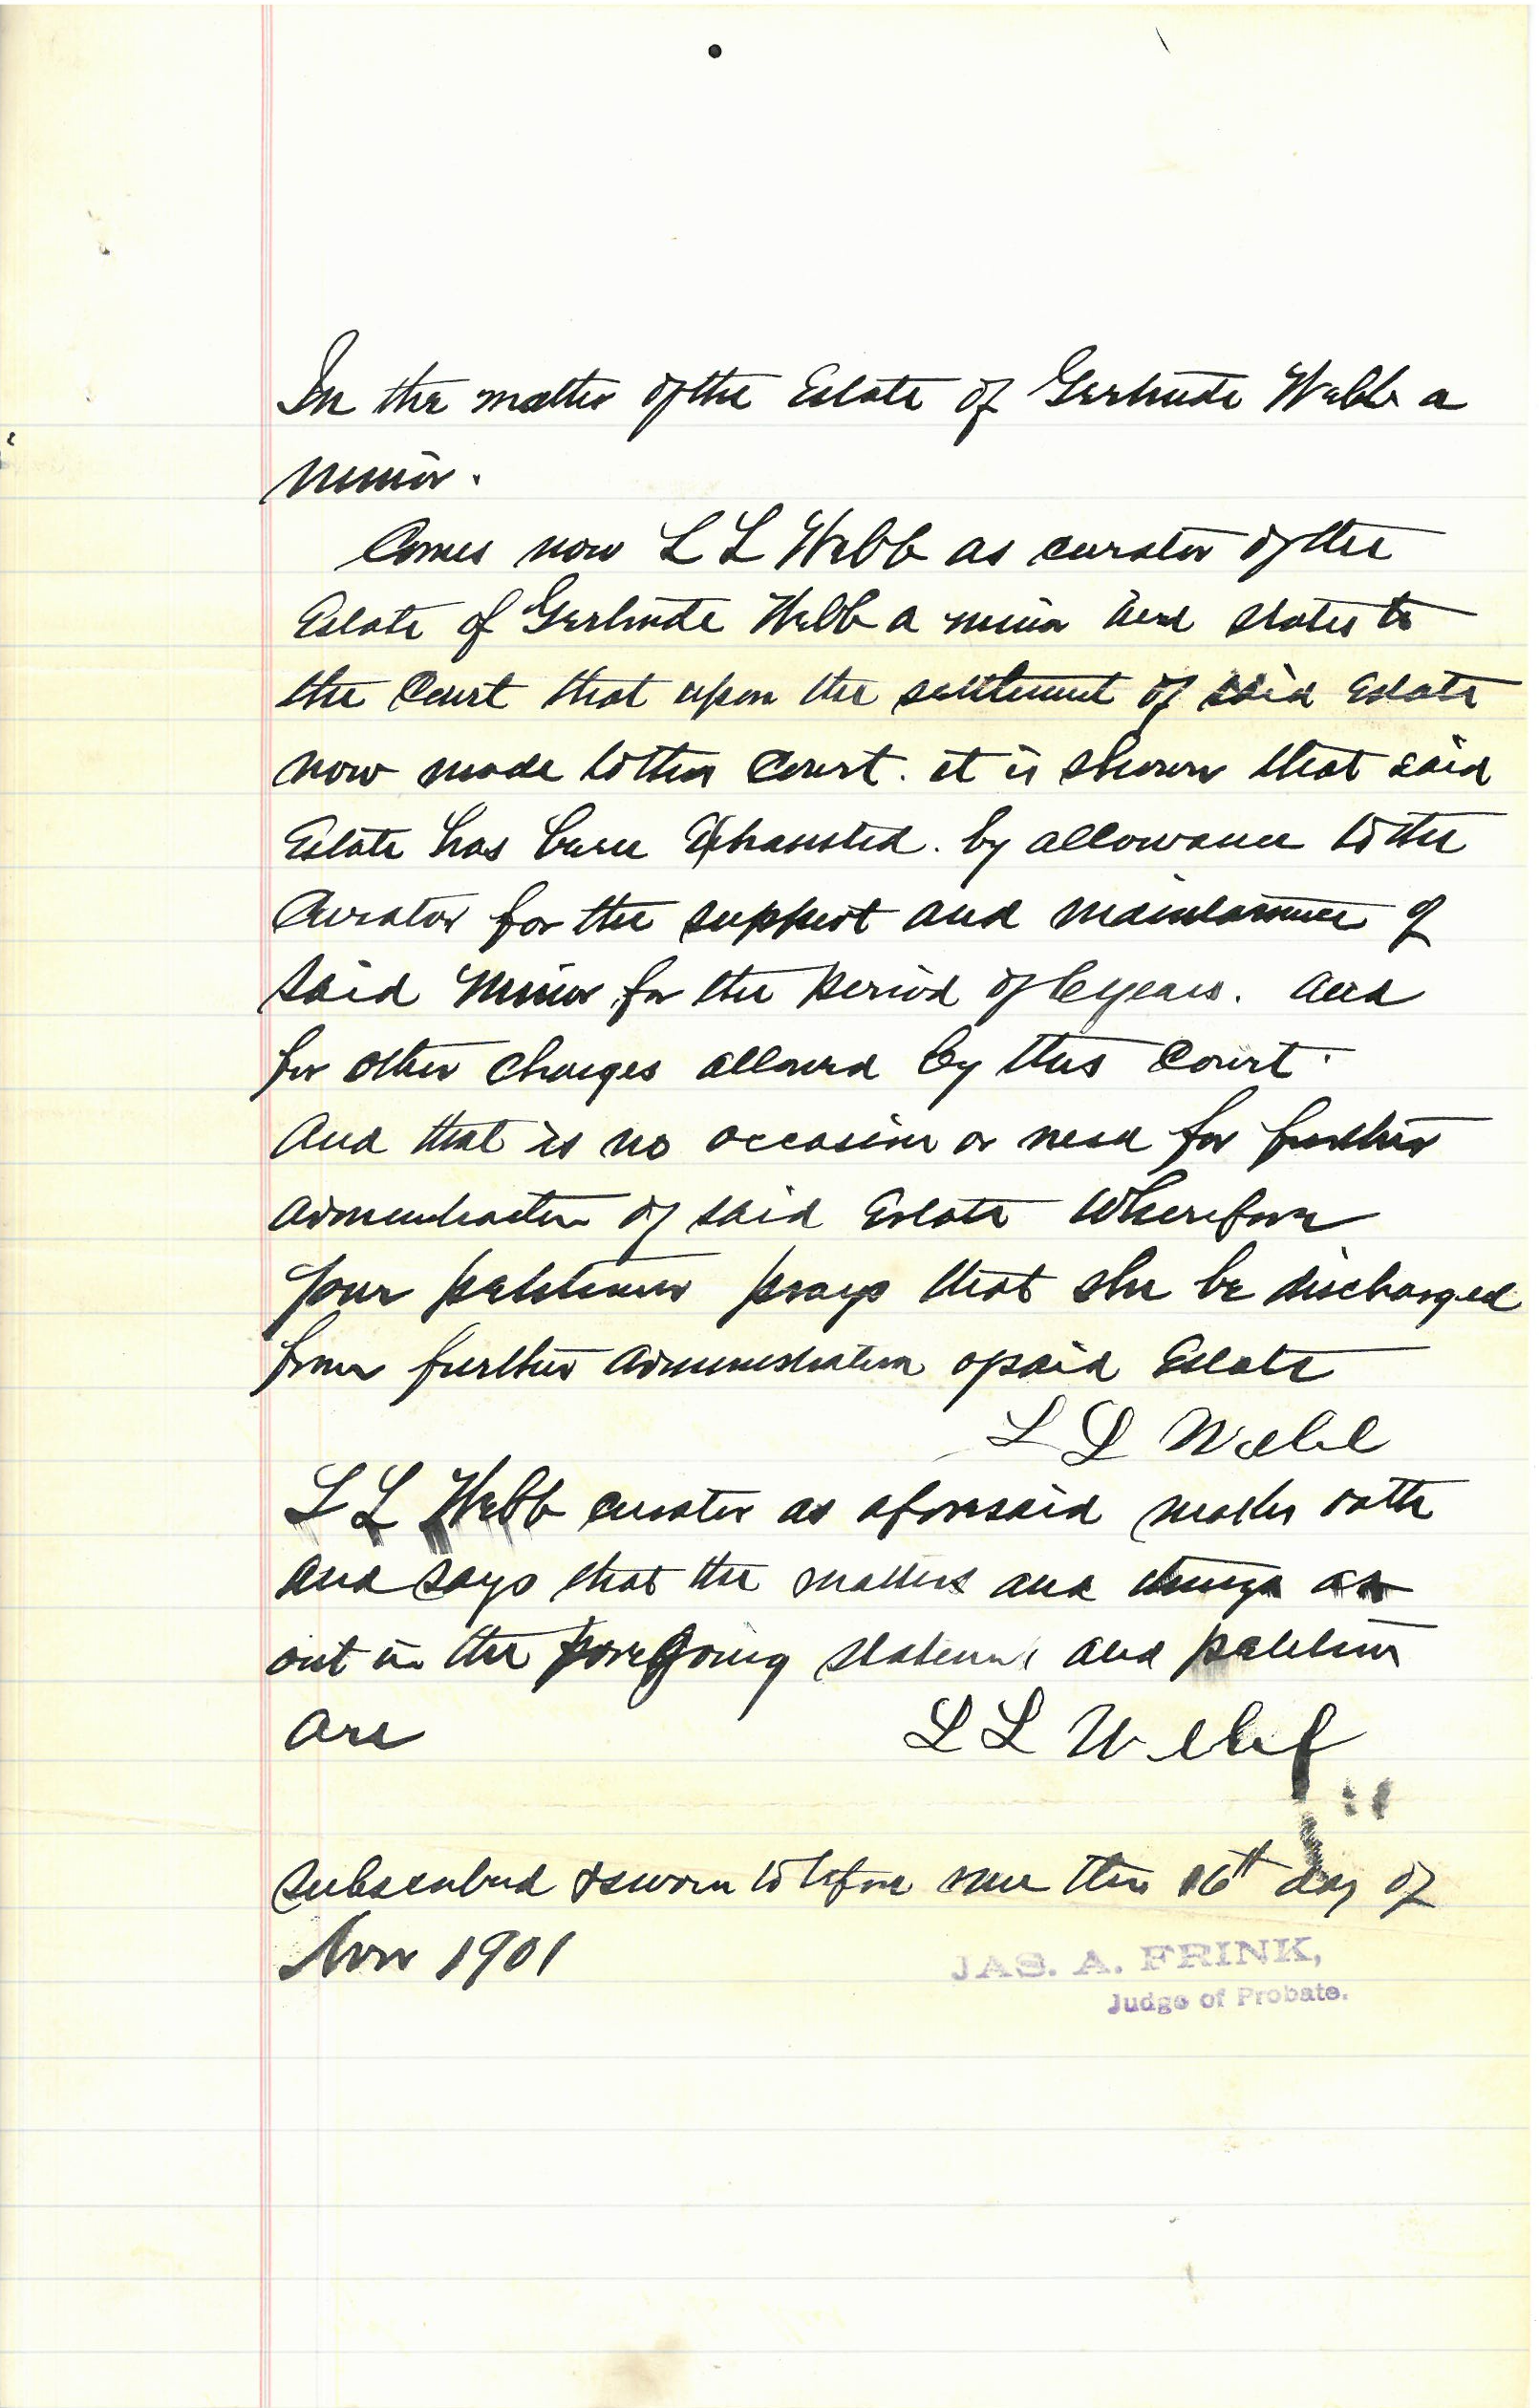 In the matter of the Estate of Gertrude Webb a
minor.
Comes now L L Webb as curator of the
Estate of Gertrude Webb a minor and states to
the Court that upon the settlement of said Estate
now made to this Court. it is shown that said
Estate has been Exhausted. by allowance to the
Curator for the support and maintainance of
said minor for the period of 6 years. and
for other charges allowed by this Court.
And that is no occasion or need for further
administration of said Estate Wherefore
your petitioner prays that she be discharged
from further administration of said Estate
L L Webb
L L Webb curator as aforesaid makes oath
and says that the matters and things as
out in the foregoing statement and petition
are
L L Webb
Subscribed & sworn to before me this 16th day of
Nov 1901
JAS. A. FRINK,
Judge of Probate.